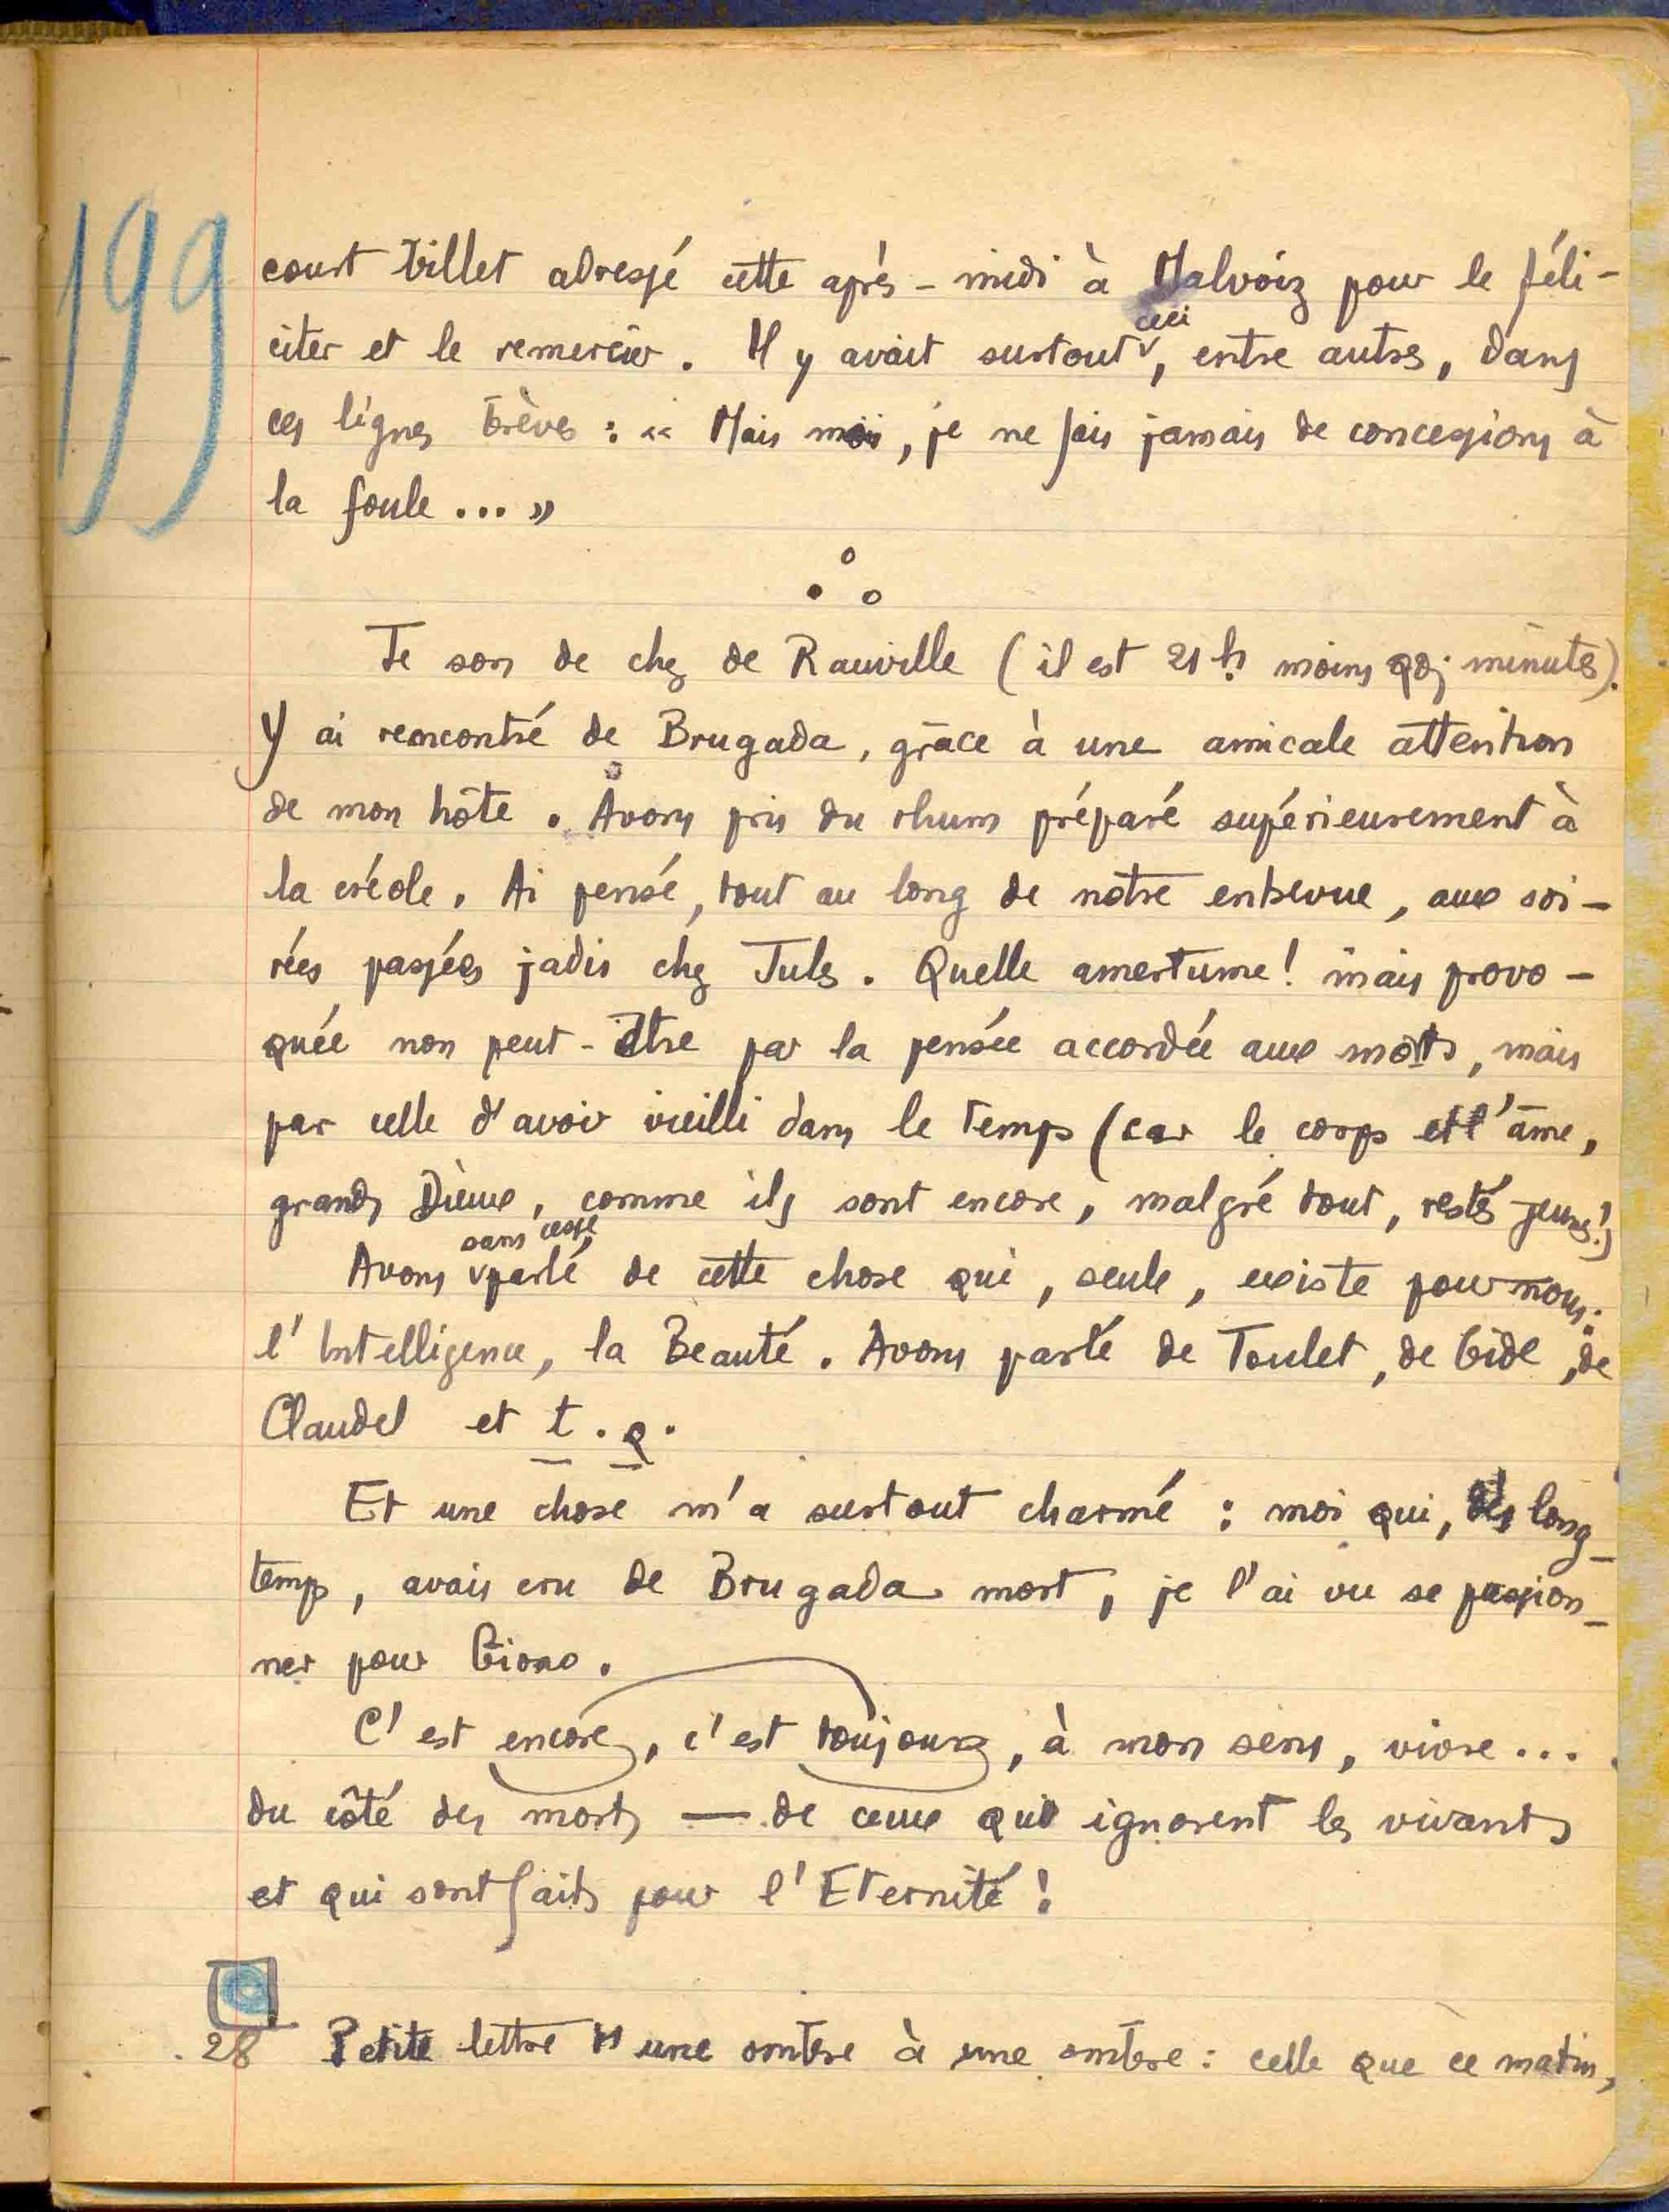 199
court billet adressé cette après-midi à Malvoiz pour le féli-
citer et le remercier. Il y avait surtout ceci, entre autres, dans
ces lignes brèves : « Mais moi, je ne fais jamais de concessions à
la foule... »
Je sors de chez de Rauville (il est 21 h. moins qqs minutes).
Y ai rencontré de Brugada, grâce à une amicale attention
de mon hôte. Avons pris du rhum préparé supérieurement à
la créole. Ai pensé, tout au long de notre entrevue, aux soi-
rées passées jadis chez Jules. Quelle amertume! mais provo-
quée non peut-être par la pensée accordée aux morts, mais
par celle d'avoir vieilli dans le temps (car le corps et l'âme,
grands Dieux, comme ils sont encore, malgré tout, restés jeunes!)
Avons sans cesse parlé de cette chose qui, seule, existe pour nous:
l'Intelligence, la Beauté. Avons parlé de Toulet, de Gide, de
Claudel et t.q.
Et une chose m'a surtout charmé : moi qui, dès long-
temps, avais cru de Brugada mort, je l'ai vu se passion-
ner pour Giono.
C'est encore, c'est toujours, à mon sens, vivre...
du côté des morts — de ceux qui ignorent les vivants
et qui sont faits pour l'Eternité!
28 Petite lettre d'une ombre à une ombre : celle que ce matin,